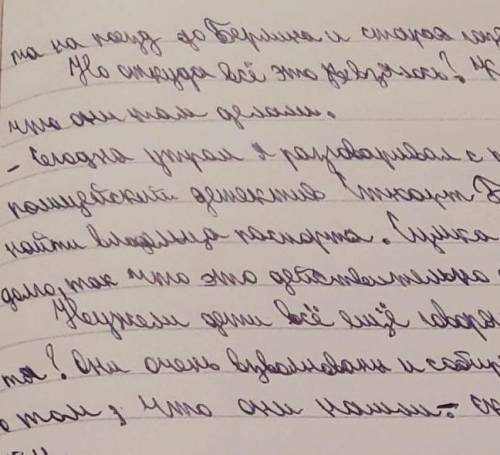 та на поезд до Берлина и старая
Но откуда всё это взялось?
что они там делали.
- Сегодня утром я разговаривал с
полицейский детектив Стюарт
найти владельца паспорта. Сумка
долго, так что это действительно
Неужели дети всё ещё говоря
та? Они очень взволнованы и
о том, что они нашли -